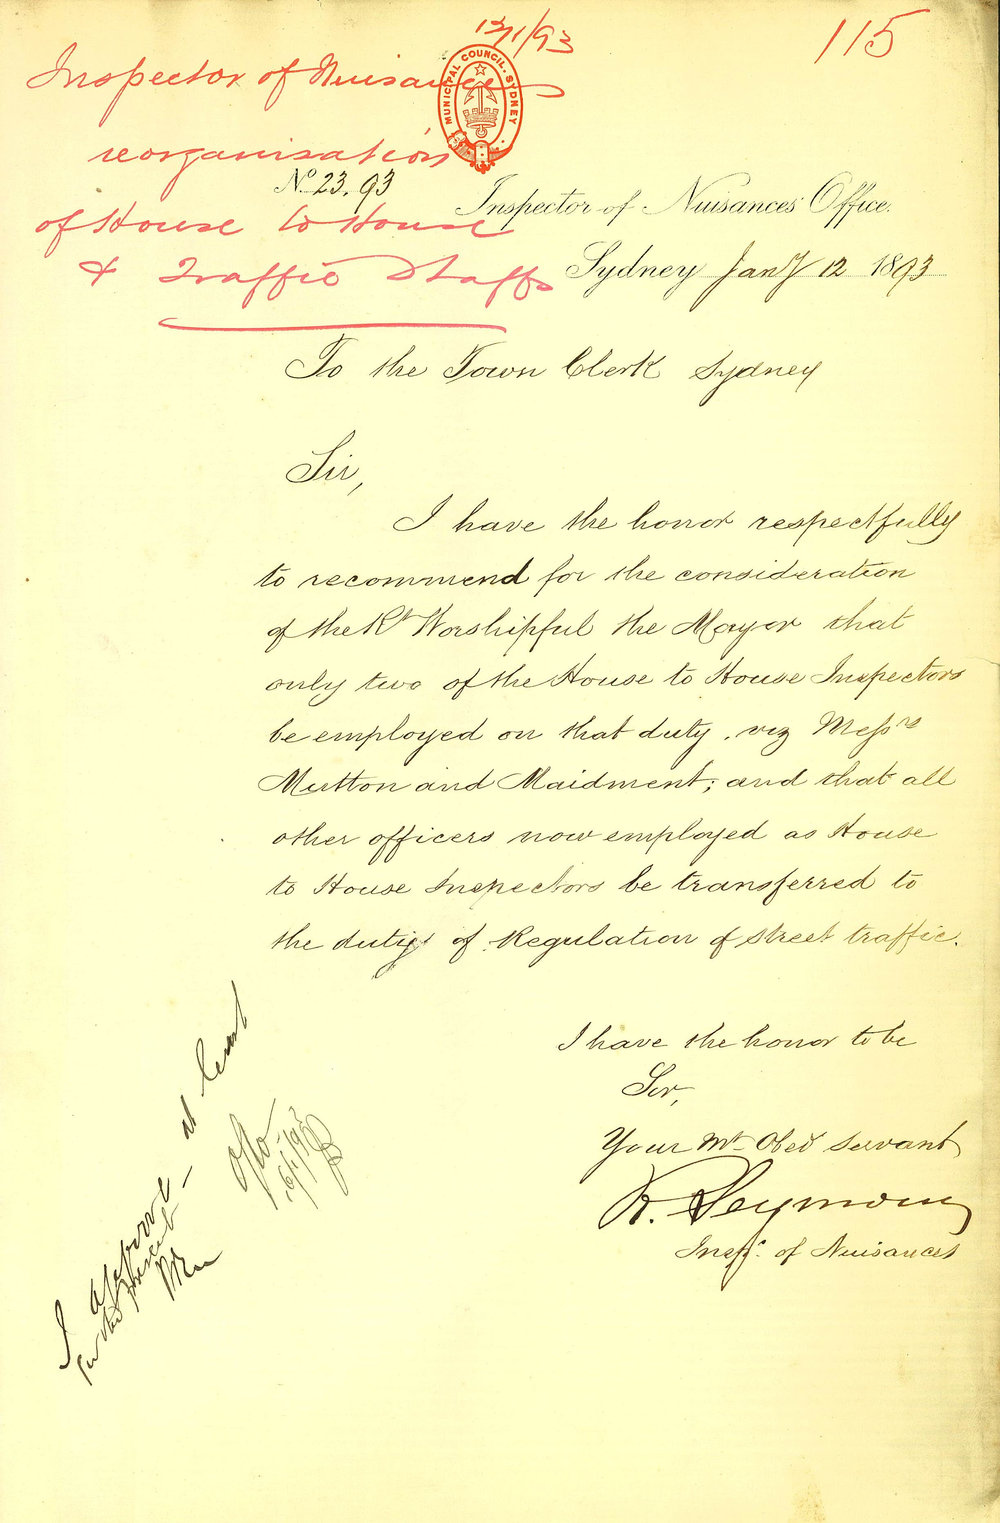 12/1/93
115
Inspector of Nuisances
reorganisation
of House to House
& Traffic Staffs
MUNICIPAL COUNCIL. SYDNEY
No 23. 93
Inspector of Nuisances' Office.
Sydney Jany 12 1893
To the Town Clerk Sydney
Sir,
I have the honor respectfully
to recommend for the consideration
of the Rt Worshipful the Mayor that
only two of the House to House Inspectors
be employed on that duty. viz Messrs
Mutton and Maidment; and that all
other officers now employed as House
to House Inspectors be transferred to
the duty of Regulation of street traffic.
I have the honor to be
Sir,
Your Mt Obed Servant
R. Seymour
Inspr. of Nuisances
I approve — at least
for the present